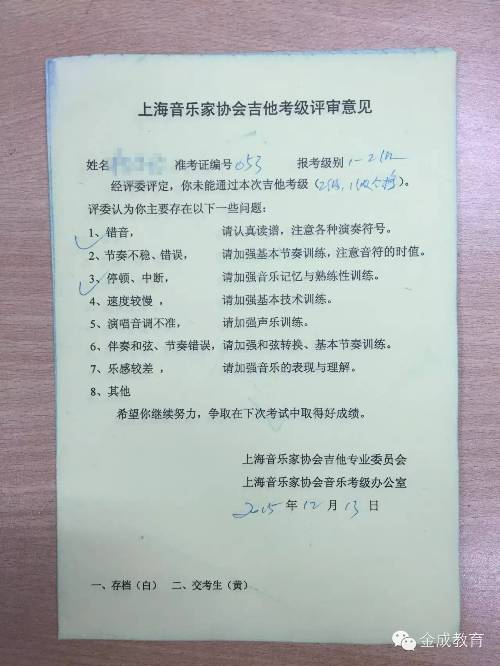 上海音乐家协会吉他考级评审意见
姓名 准考证编号 053 报考级别 1-2级
经评委评定，你未能通过本次吉他考级（2级，1级合格）。
评委认为你主要存在以下一些问题：
1、错音， 请认真读谱，注意各种演奏符号。
2、节奏不稳、错误， 请加强基本节奏训练，注意音符的时值。
3、停顿、中断， 请加强音乐记忆与熟练性训练。
4、速度较慢， 请加强基本技术训练。
5、演唱音调不准， 请加强声乐训练。
6、伴奏和弦、节奏错误，请加强和弦转换、基本节奏训练。
7、乐感较差， 请加强音乐的表现与理解。
8、其他
希望你继续努力，争取在下次考试中取得好成绩。
上海音乐家协会吉他专业委员会
上海音乐家协会音乐考级办公室
2015 年 12 月 13 日
一、存档（白） 二、交考生（黄）
金成教育